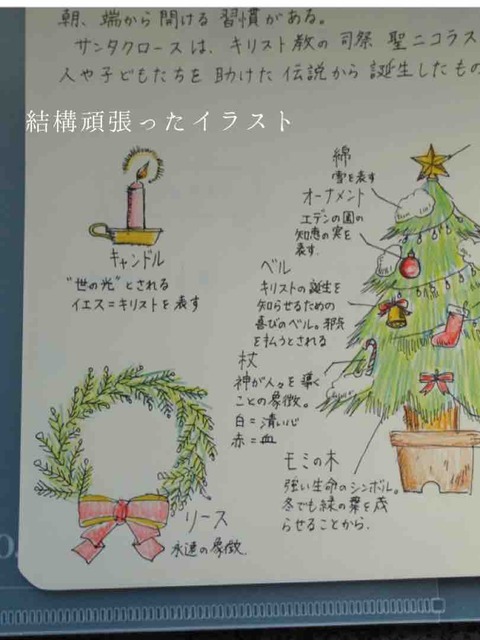 朝、端から開ける習慣がある。
サンタクロースは、キリスト教の司祭 聖ニコラス
人や子どもたちを助けた伝説から誕生したもの
結構頑張ったイラスト
キャンドル
"世の光"とされる
イエス=キリストを表す
綿
雪を表す
オーナメント
エデンの園の
知恵の実を
表す.
ベル
キリストの誕生を
知らせるための
喜びのベル。邪気
を払うとされる
杖
神が人々を導く
ことの象徴。
白=清い心
赤=血
モミの木
強い生命のシンボル。
冬でも緑の葉を茂
らせることから.
リース
永遠の象徴.